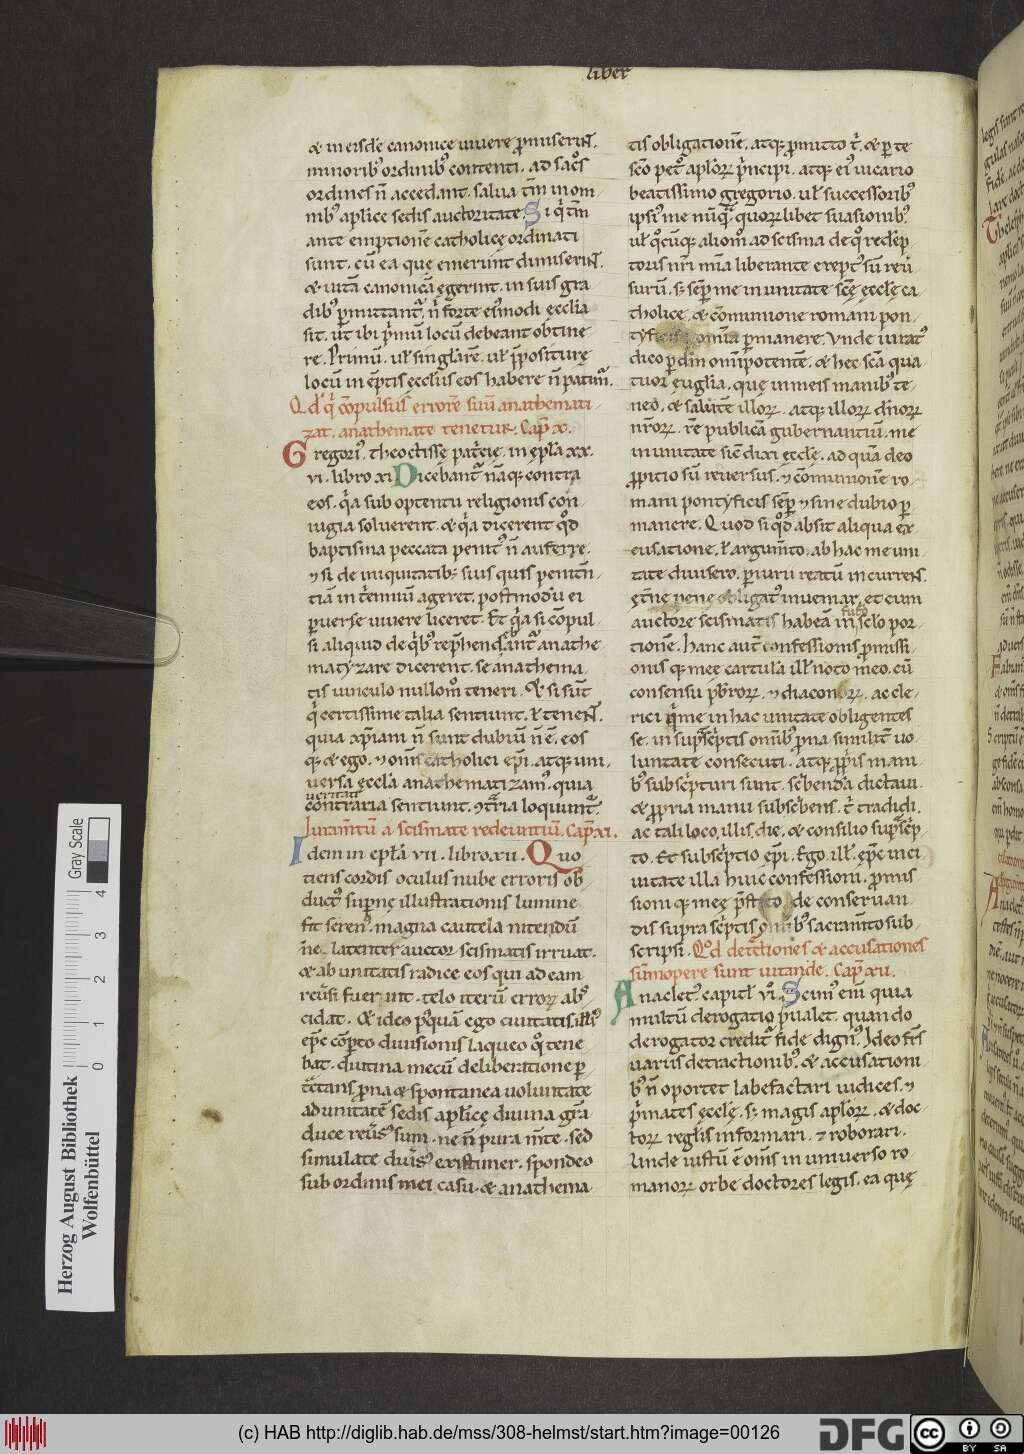 liber
& in eisdē canonice uiuere p̄miserint̄.
minorib; ordinib; contenti. ad sac̄s
ordines n̄ accedant. salua tm̄ in om
nib; aplice sedis auctoritate. Si q̄ tm̄
ante emptionē catholicę ordinati
sunt. cū ea que emerunt dimiserint̄.
& uitā canonicā egerint. in suis gra
dib; ꝑmittant᷑. n̄ forte ei᷒modi ęccl̄ia
sit. ut ibi p̄mū locū debeant obtine
re. Primū. ul̄ singlarē. ul̄ p̄positurę
locū in ēptis ęcclīis eos habere n̄ patim᷑.
Qd̄ q̄ cōpulsus errorē suū anathemati
zat. anathemate tenetur. Cap̄ x.
Gregori᷒. theoctisse pat̄cię. in ep̄la xx.
vi. libro xi Dicebant᷑ nāq; contra
eos. q̄a sub optentu religionis con
iugia soluerent. & q̄a dicerent qd̄
baptisma peccata penit᷒ n̄ auferre.
⁊ si de iniquitatib; suis quis penitn̄
tiā in t̄enniū ageret. postmodū ei
ꝑuerse uiuere liceret. Et q̄a si cōpul
si aliquid de q̄b; rep̄hendant᷑ anathe
matyzare dicerent. se anathema
tis uinculo nullom̊ teneri. Qd̄ si sunt
q̄ certissime talia sentiunt. ł tenent̄.
quia xp̄iani n̄ sunt dubiū n̄ ē. eos
q; & ego. ⁊ om̄s catholici ep̄i. atq; uni
uersa ęccl̄a anathematizam᷒. quia
ueritati
contraria sentiunt. ⁊t̄ria loquunt᷑.
Iuramt̄ū a scismate redeuntiū. Cap̄ xi.
Idem in ep̄la vii. libro. xii. Quo
tiens cordis oculus nube erroris ob
duct᷒ sup̄nę illustrationis lumine
fit seren᷒. magna cautela nitendū
n̄e. latenter auctor scismatis irruat.
& ab unitatis radice eos qui ad eam
reūsi fuerint. telo iterū erroꝝ abs
cidat. Et ideo p᷒quā ego ciuitatis. illi᷒
ep̄c cōp̄to diuisionis laqueo q̊ tene
bat. diutina mecū deliberatione ꝑ
t̄ctans. prona & spontanea uoluntate
ad unitatē sedis aplīcę diuina gr̄a
duce reūs᷒ sum. ne n̄ pura m̄te. sed
simulate duūs᷒ existimer. spondeo
sub ordinis mei casu. & anathema
tis obligatione. atq; ꝑmitto t̄. & ꝑ te
sc̄o pet᷑o aplōꝝ p̄ncipi. atq; ei᷒ uicario
beatissimo gregorio. ul̄ successorib;
ipsi᷒. me nūq̄. quoꝝ libet suasionib;
ul̄ q̊cūq; alio m̊ ad scisma de q̊ redēp
toris nr̄i mīa liberante erept᷒ sū reū
surū. s; sēp me in unitate sc̄ę ęcclę ca
tholice. & cōmunione romani pon
tyficis omīa ꝑmanere. Vnde iurat᷒
dico ꝑ dm̄ omīpotentē. & hec sc̄a qua
tuor euglīa. que in meis manib; te
neo. & salutē illoꝝ. atq; illoꝝ dn̄oꝝ
nr̄oꝝ. rē publicā gubernantiū. me
in unitate sic̄ dixi ęcclę. ad quā deo
ꝓpitio sū reuersus. ⁊ cōmunionē ro
mani pontyficis sēp ⁊ sine dubio ꝑ
manere. Quod si qd̄ absit aliqua ex
cusatione. ł argum̄to. ab hac me uni
tate diuisero. ꝑiurii reatū incurrens.
ęt̄ne penę obligat᷒ inueniar. et cum
futuro
auctore scismatis habeā in sclo por
tionē. hanc aut̄ confessionis ꝑmissi
onis q; meę cartulā ill̄ noto meo. cū
consensu p̄b̄roꝝ. ⁊ diaconoꝝ. ac cle
rici q̄ me in hac unitate obligentes
se. in sup̄sc̄ptis omīb; prona simili᷑t uo
luntate consecuti. atq; ꝓpriis mani
b; subsc̄pturi sunt. sc̄benda dictaui.
& ꝓpria manu subsc̄bens. t̄ tradidi.
ac tali loco, illis. die. & consilio sup̄sc̄p
to. Et subsc̄ptio ep̄i. Ego. ill̄. ep̄c in ci
uitate illa huic confessioni. ꝓmis
sioni q; meę p̄stito de conseruan
dis supra sc̄ptis omīb; sacram̄to sub
scripsi. Qd̄ det̄ctiones & accusationes
sūmopere sunt uitandę. Cap̄ xii.
Anaclet᷒. capitl̄ vi. Scim᷒ em̄ quia
multū derogatio p̄ualet. quando
derogatoꝛ credit᷑ fide dign᷒. Ideo fr̄s
uariis detractionib;. & accusationi
b; n̄ oportet labefactari iudices. ⁊
p̄mates ęcclę. s; magis aplōꝝ. & doc
toꝝ reglīs informari. ⁊ roborari.
Unde iustū ē om̄s in uniuerso ro
manoꝝ orbe doctores legis. ea quę
Herzog August Bibliothek
Wolfenbüttel
Gray Scale
0 1 2 3 4
(c) HAB http://diglib.hab.de/mss/308-helmst/start.htm?image=00126
DFG
cc BY SA